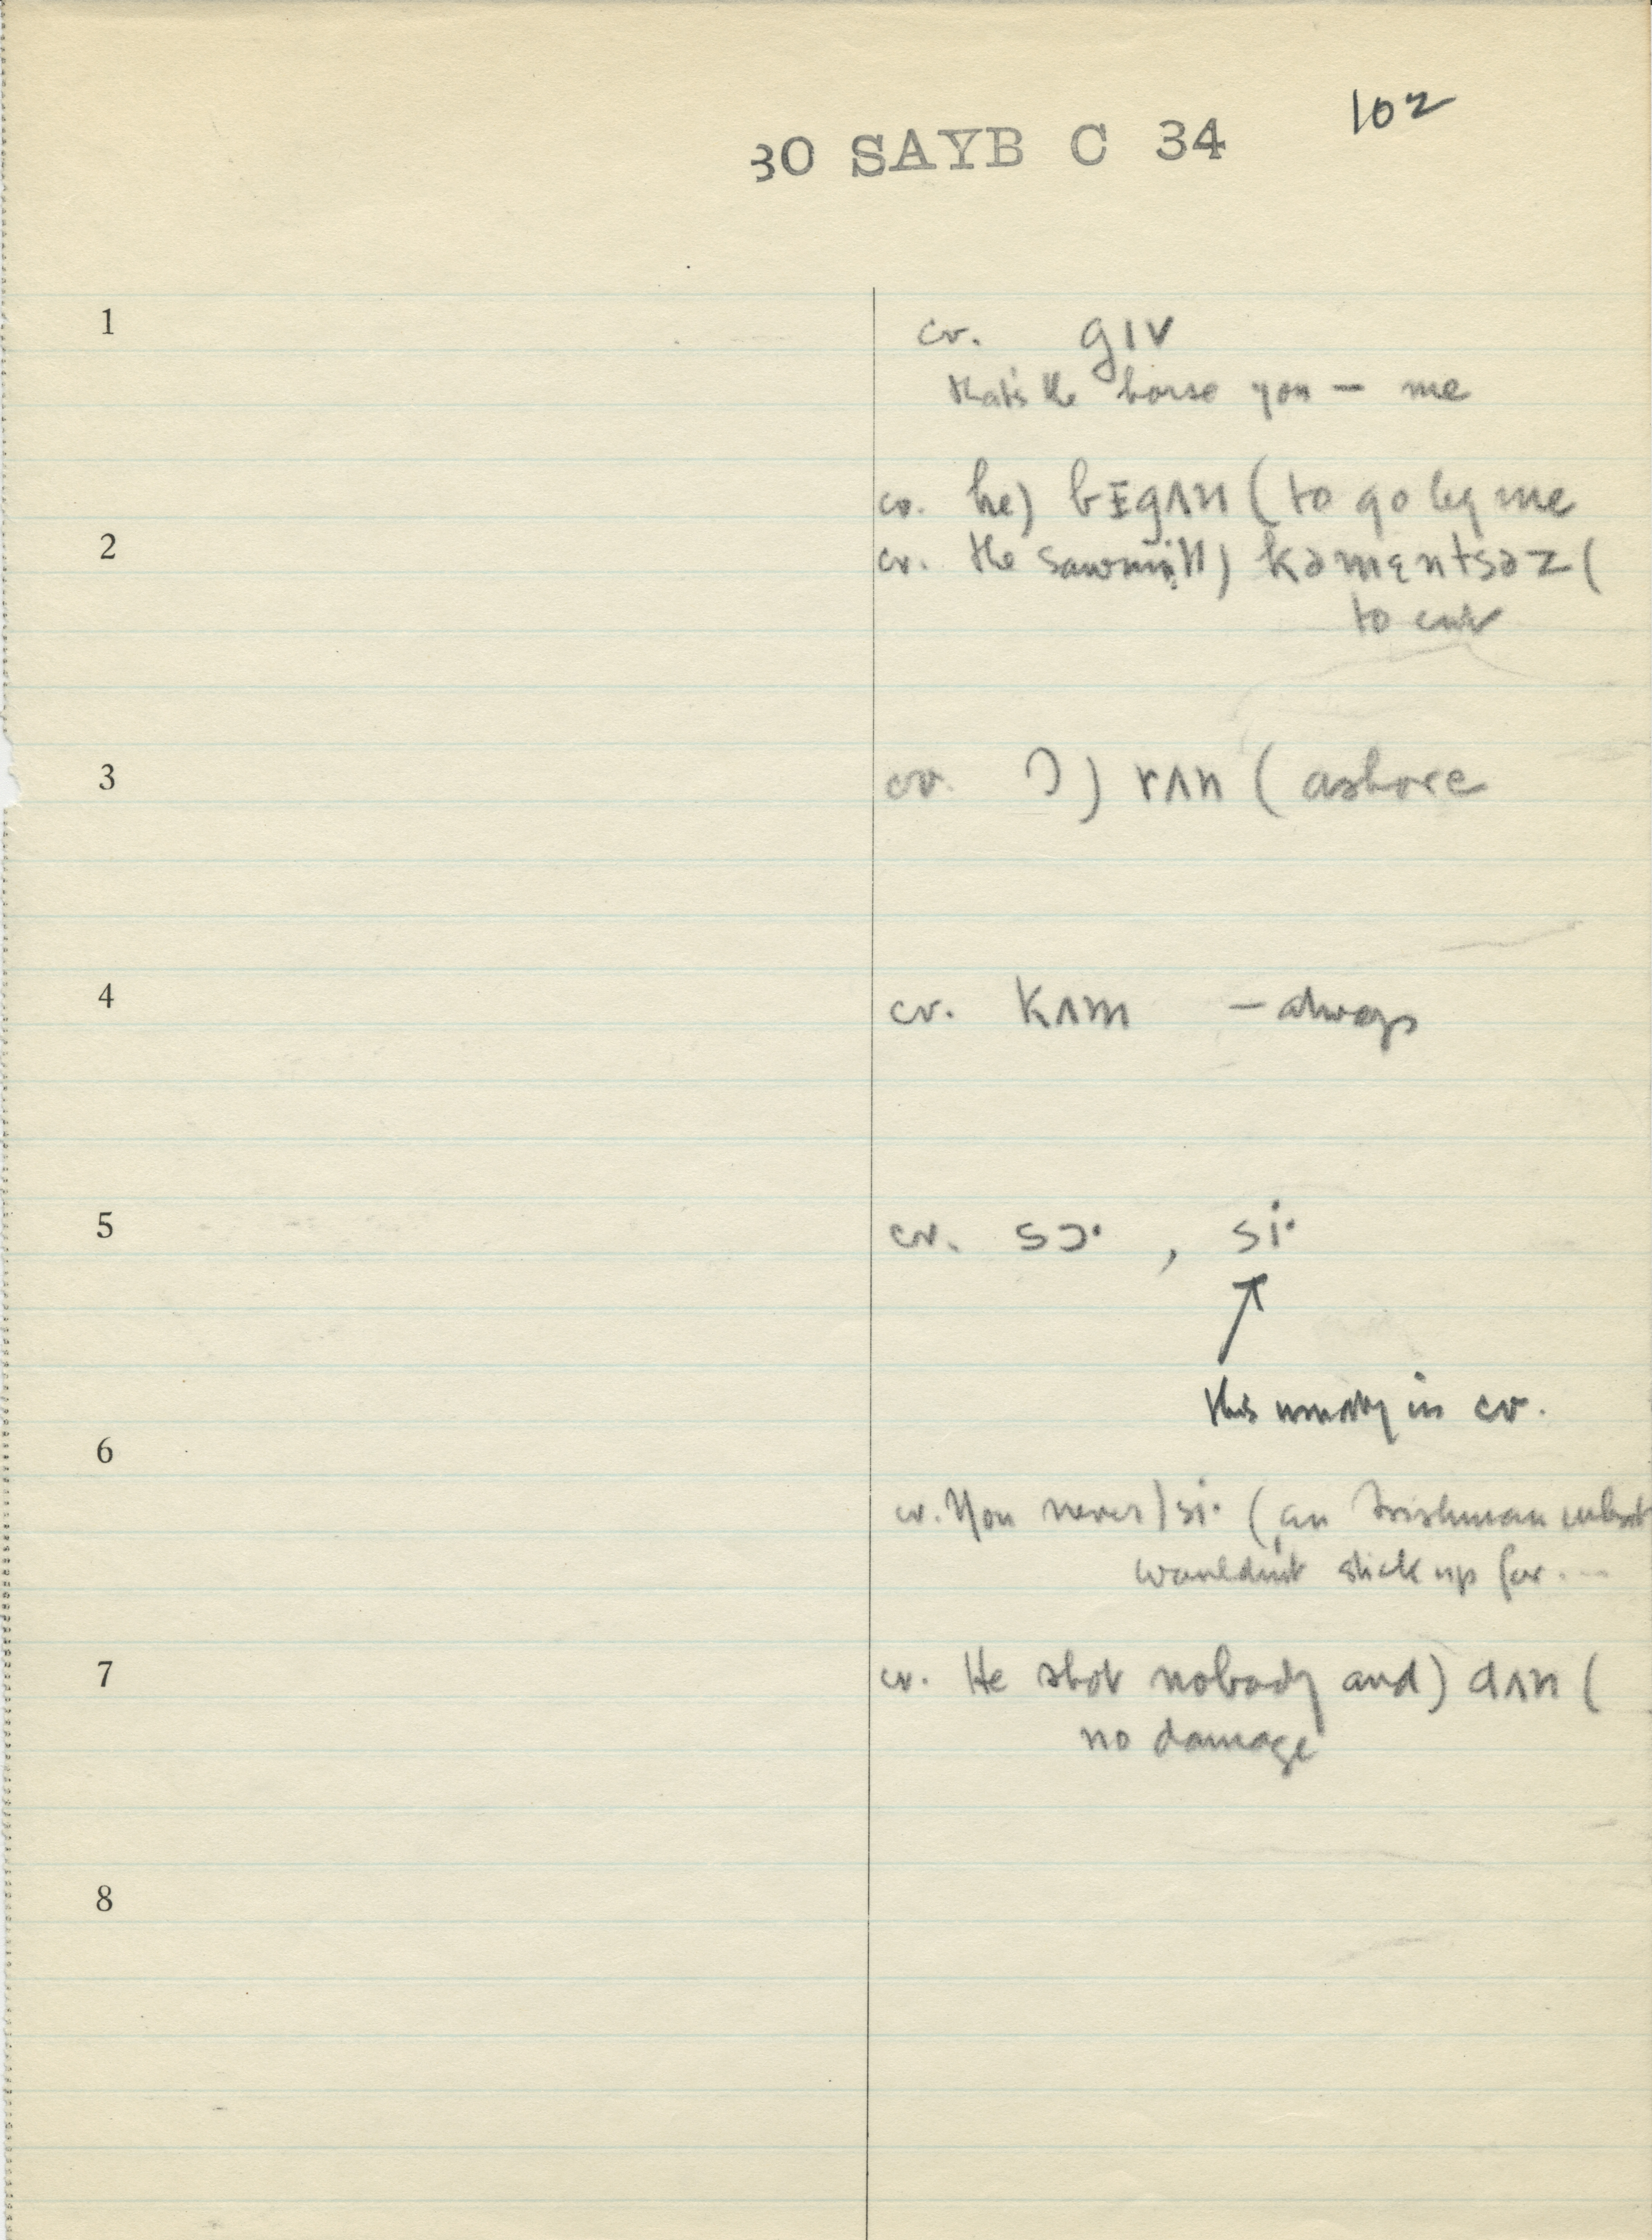 102
30 SAYB C 34
1 cv. gɪv
that's the horse you — me
cv. he) bɪgʌn ( to go by me
2 cv. the sawmill) kəmɛntsəz (
to cut
3 cv. ) rʌn ( ashore
4 cv. kʌm — always
5 cv. sɔ· , si·
↑
this usually in cv.
6
cv. You never) si· ( an Irishman what
wouldn't stick up for ...
7 cv. He shot nobody and) dʌn (
no damage
8